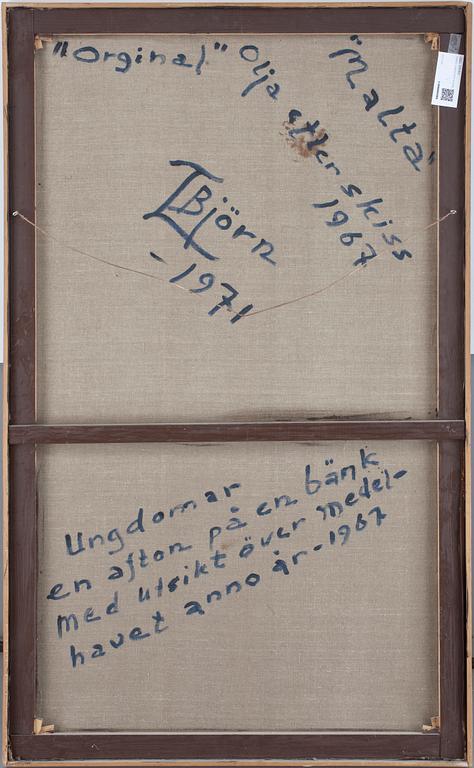 "Orginal" Olja efter skiss
1967
"Malta"
Björn
-1971
Ungdomar
en afton på en bänk
med utsikt över medel-
havet anno år-1967